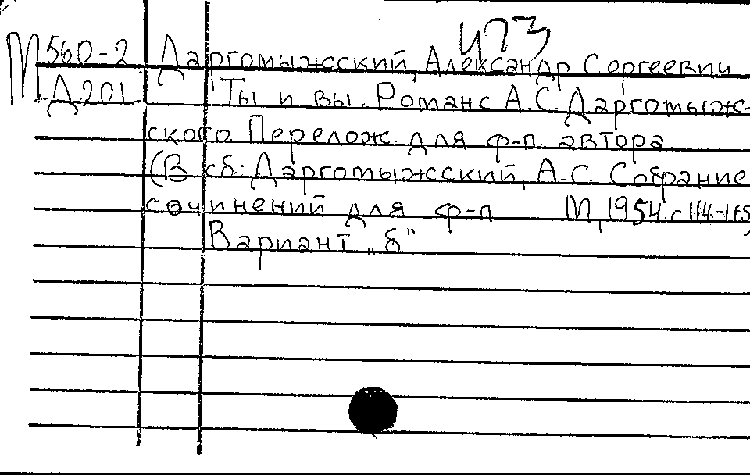 473
М 560-2 Даргомыжсский, Александр Сергеевич
Д201 Ты и вы. Романс А.С. Даргомыж-
ского Перелож. для ф-п. автора
(В сб: Даргомыжсский, А.С. Собрание
сочинений для ф-п М, 1954. с 114-165)
Вариант „б"